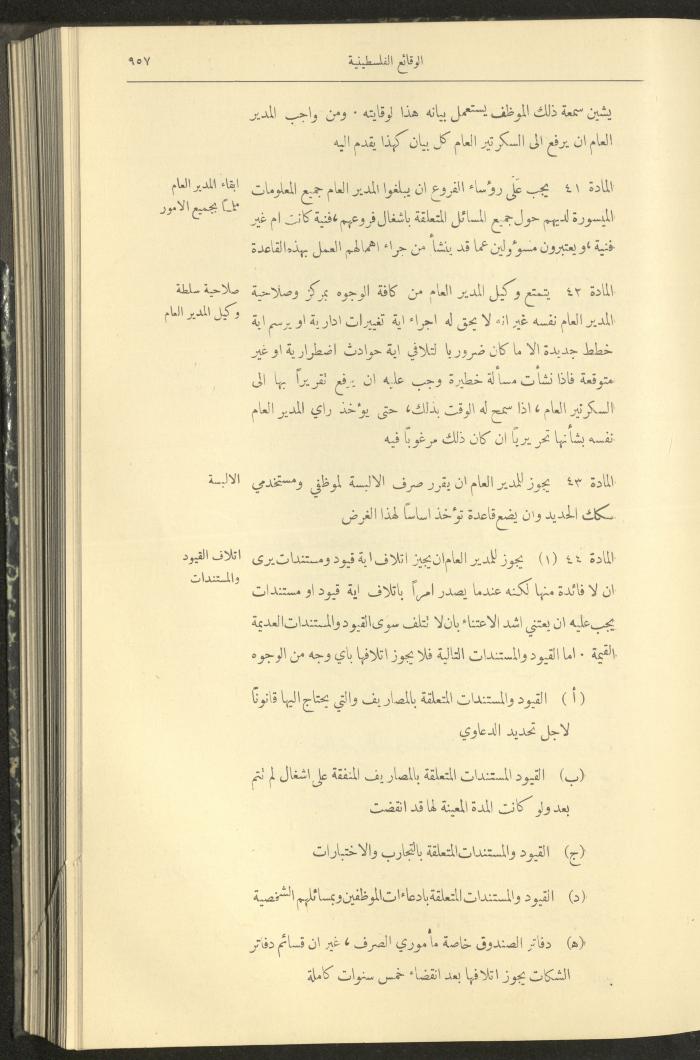 الوقائع الفلسطينية
٩٥٧
يشين سمعة ذلك الموظف يستعمل بيانه هذا لوقايته · ومن واجب المدير
العام ان يرفع الى السكرتير العام كل بيان كهذا يقدم اليه
المادة ٤١ يجب عَلَى رؤساء الفروع ان يبلغوا المدير العام جميع المعلومات
الميسورة لديهم حول جميع المسائل المتعلقة باشغال فروعهم، فنية كانت ام غير
فنية، ويعتبرون مسؤولين عما قد ينشأ من جراء اهمالهم العمل بهذه القاعدة
ابقاء المدير العام
ملمّا بجميع الامور
المادة ٤٢ يتمتع وكيل المدير العام من كافة الوجوه بمركز وصلاحية
المدير العام نفسه غير انه لا يحق له اجراء اية تغييرات ادارية او يرسم اية
خطط جديدة الا ما كان ضروريا لتلافي اية حوادث اضطرارية او غير
متوقعة فاذا نشأت مسألة خطيرة وجب عليه ان يرفع تقريراً بها الى
السكرتير العام، اذا سمح له الوقت بذلك، حتى يؤخذ راي المدير العام
نفسه بشأنها تحريريًا ان كان ذلك مرغوبًا فيه
صلاحية سلطة
وكيل المدير العام
المادة ٤٣ يجوز للمدير العام ان يقرر صرف الالبسة لموظفي ومستخدمي
سكك الحديد وان يضع قاعدة تؤخذ اساسًا لهذا الغرض
الالبسة
المادة ٤٤ (١) يجوز للمدير العام ان يجيز اتلاف اية قيود ومستندات يرى
ان لا فائدة منها لكنه عندما يصدر امراً باتلاف اية قيود او مستندات
يجب عليه ان يعتني اشد الاعتناء بان لا تتلف سوى القيود والمستندات العديمة
القيمة · اما القيود والمستندات التالية فلا يجوز اتلافها باي وجه من الوجوه
اتلاف القيود
والمستندات
(أ) القيود والمستندات المتعلقة بالمصاريف والتي يحتاج اليها قانونًا
لاجل تحديد الدعاوي
(ب) القيود المستندات المتعلقة بالمصاريف المنفقة على اشغال لم تتم
بعد ولو كانت المدة المعينة لها قد انقضت
(ج) القيود والمستندات المتعلقة بالتجارب والاختبارات
(د) القيود والمستندات المتعلقة بادعاءات الموظفين وبمسائلهم الشخصية
(ه) دفاتر الصندوق خاصة مأموري الصرف، غير ان قسائم دفاتر
الشكات يجوز اتلافها بعد انقضاء خمس سنوات كاملة